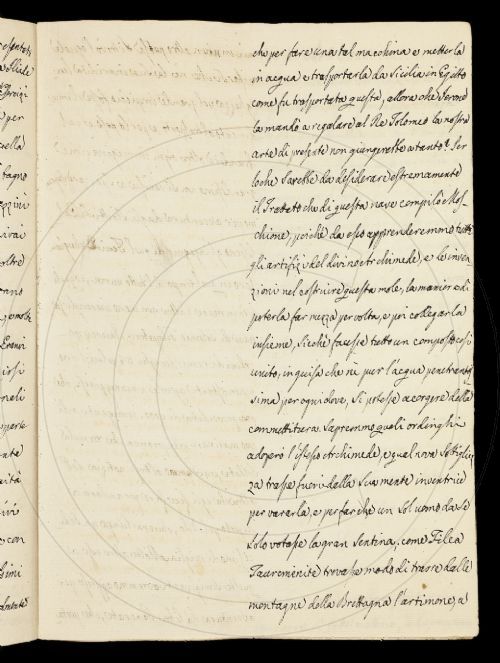 che per fare una tal machina e metterla
in acqua e trasportarla da Sicilia in Egitto
come fu trasportata questa, allora che Ierone
la mandò a regalare al Re Tolomeo la nostra
arte di presente non giungerebbe a tanto. Per
loche sarebbe da desiderare estremamente
il Trattato che di questa nave compilò Mos-
chione, poichè da esso apprenderemmo tutti
gli artifizj del divino Archimede, e le inven
zioni nel costruire questa mole, la maniera di
poterla far mezza per volta, e poi collegarla
insieme, sicchè facesse tutto un composto così
unito, in guisa che nè pur l'acqua penetrantis
sima per ogni dove, si potesse acorgere della
commettitura. Sapremmo quali ordinghi
adoperò l'istesso Archimede, e qual nova sottigliez
za trasse fuori dalla sua mente inventrice
per vararla, e per far che un sol uomo da se
solo votasse la gran sentina, come Filea
Tauromenite trovasse modo di trarre dalle
montagne della Brettagna l'artimone, a
esentati
per
uella
tagno
ezzini
oltre
anno
nte
ivi
e con